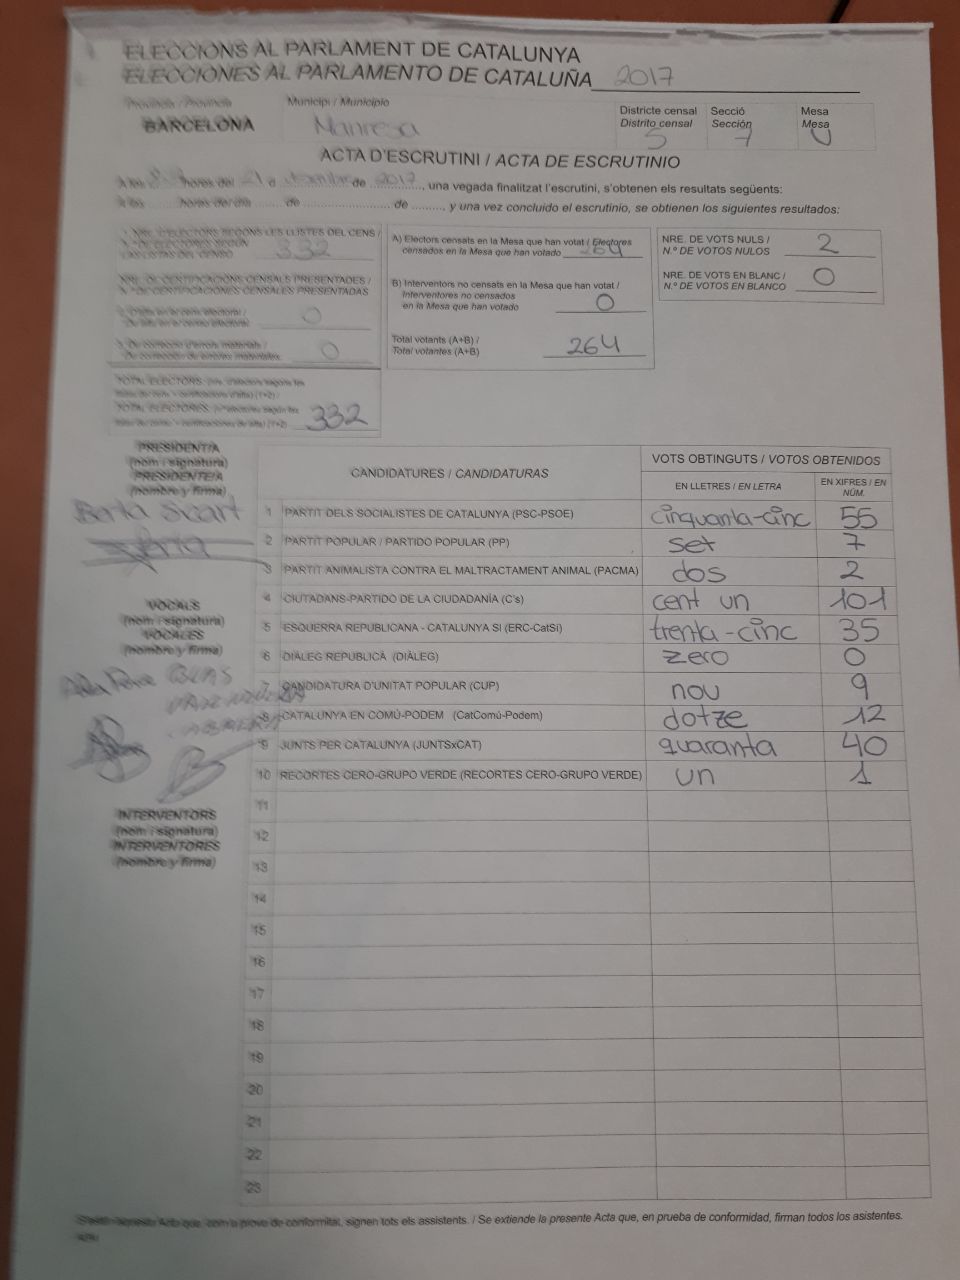 ELECCIONS AL PARLAMENT DE CATALUNYA
ELECCIONES AL PARLAMENTO DE CATALUÑA 2017
Província / Provincia
BARCELONA
Municipi / Municipio
Manresa
Districte censal
Distrito censal
5
Secció
Sección
7
Mesa
Mesa
U
ACTA D'ESCRUTINI / ACTA DE ESCRUTINIO
A les hores del 21 d desembre de 2017, una vegada finalitzat l'escrutini, s'obtenen els resultats següents:
A las ........ horas del día ........ de ........................ de ........., y una vez concluido el escrutinio, se obtienen los siguientes resultados:
1. NRE. D'ELECTORS SEGONS LES LLISTES DEL CENS /
N.º DE ELECTORES SEGÚN
LAS LISTAS DEL CENSO 332
NRE. DE CERTIFICACIONS CENSALS PRESENTADES /
N.º DE CERTIFICACIONES CENSALES PRESENTADAS
2. D'alta en el cens electoral /
De alta en el censo electoral 0
3. De correcció d'errors materials /
De corrección de errores materiales 0
TOTAL ELECTORS: (nre. d'electors segons les
llistes del cens + certificacions d'alta) (1+2) /
TOTAL ELECTORES: (n.º electores según las
listas del censo + certificaciones de alta) (1+2) 332
A) Electors censats en la Mesa que han votat / Electores
censados en la Mesa que han votado 264
B) Interventors no censats en la Mesa que han votat /
Interventores no censados
en la Mesa que han votado 0
Total votants (A+B) /
Total votantes (A+B) 264
NRE. DE VOTS NULS /
N.º DE VOTOS NULOS 2
NRE. DE VOTS EN BLANC /
N.º DE VOTOS EN BLANCO 0
PRESIDENT/A
(nom i signatura)
PRESIDENTE/A
(nombre y firma)
Berta
VOCALS
(nom i signatura)
VOCALES
(nombre y firma)
INTERVENTORS
(nom i signatura)
INTERVENTORES
(nombre y firma)
CANDIDATURES / CANDIDATURAS
VOTS OBTINGUTS / VOTOS OBTENIDOS
EN LLETRES / EN LETRA
EN XIFRES / EN
NÚM.
1 PARTIT DELS SOCIALISTES DE CATALUNYA (PSC-PSOE) cinquanta-cinc 55
2 PARTIT POPULAR / PARTIDO POPULAR (PP) set 7
3 PARTIT ANIMALISTA CONTRA EL MALTRACTAMENT ANIMAL (PACMA) dos 2
4 CIUTADANS-PARTIDO DE LA CIUDADANÍA (C's) cent un 101
5 ESQUERRA REPUBLICANA - CATALUNYA SÍ (ERC-CatSí) trenta-cinc 35
6 DIÀLEG REPUBLICÀ (DIÀLEG) zero 0
7 CANDIDATURA D'UNITAT POPULAR (CUP) nou 9
8 CATALUNYA EN COMÚ-PODEM (CatComú-Podem) dotze 12
9 JUNTS PER CATALUNYA (JUNTSxCAT) quaranta 40
10 RECORTES CERO-GRUPO VERDE (RECORTES CERO-GRUPO VERDE) un 1
11
12
13
14
15
16
17
18
19
20
21
22
23
S'estén aquesta Acta que, com a prova de conformitat, signen tots els assistents. / Se extiende la presente Acta que, en prueba de conformidad, firman todos los asistentes.